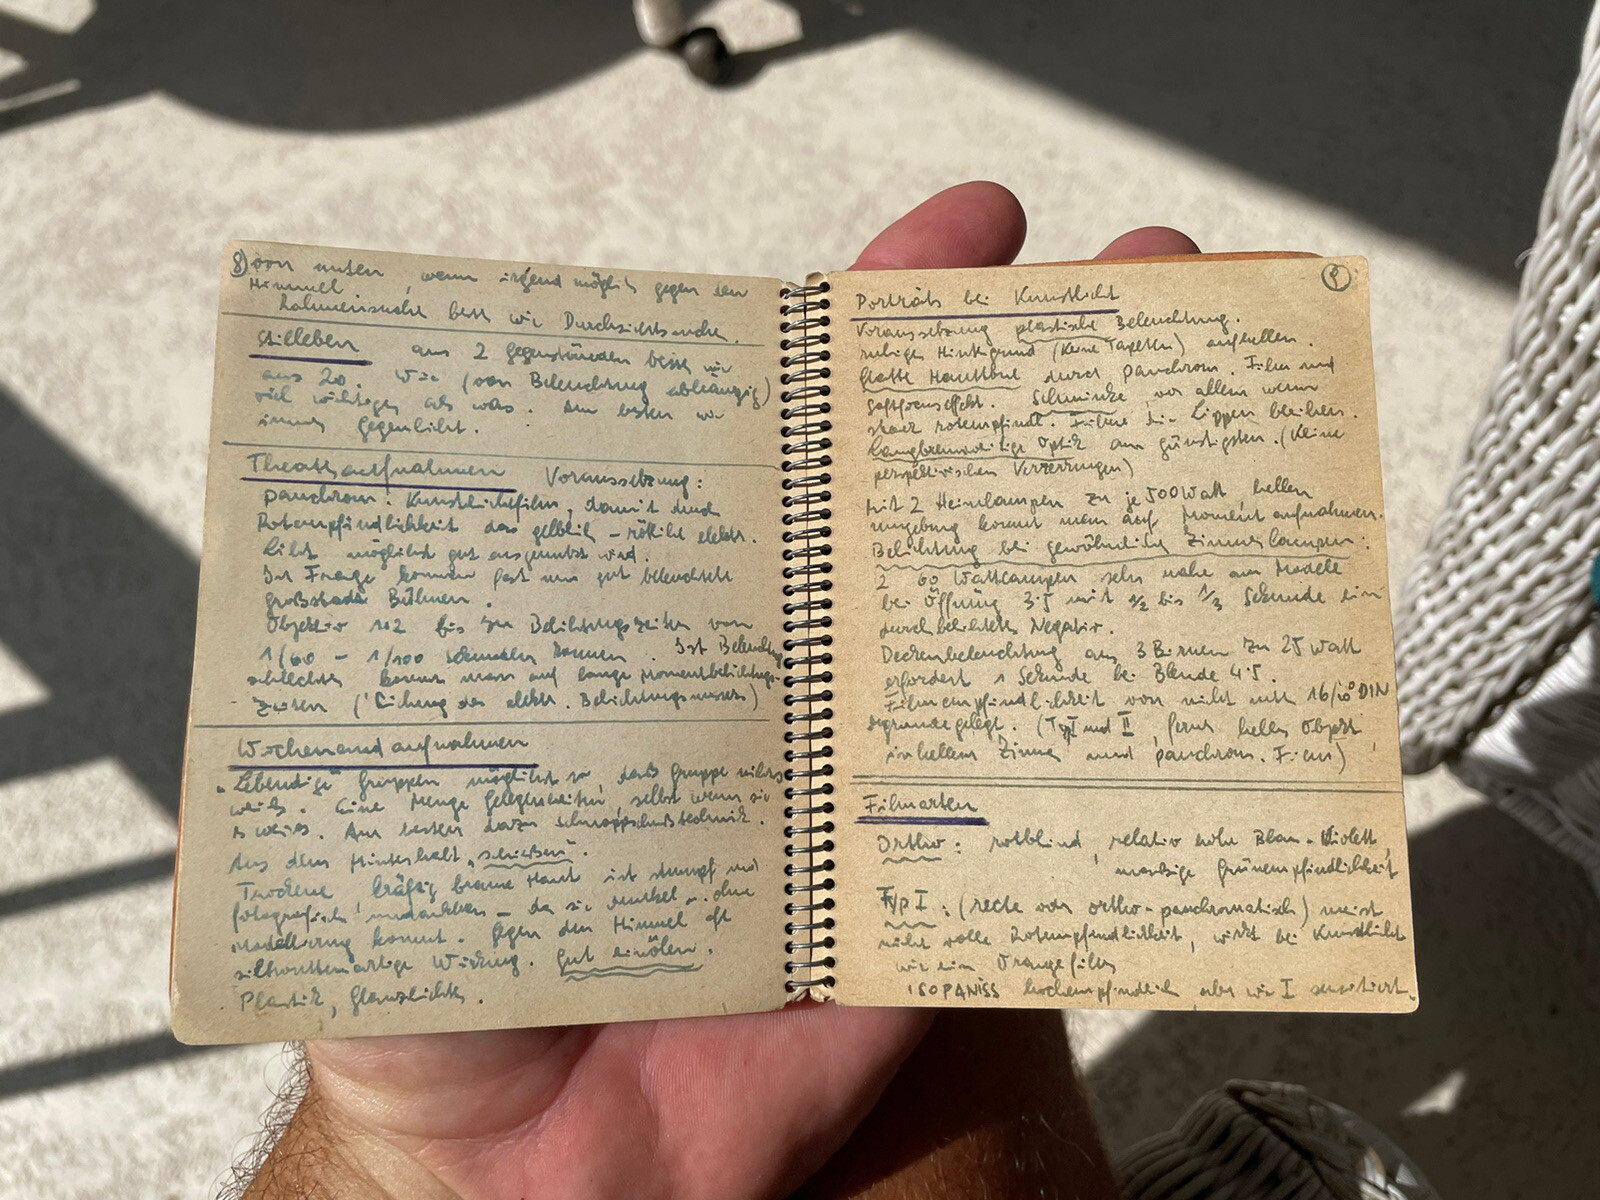 8) von unten, wenn irgend möglich gegen den
Himmel
Rahmensuche besser wie Durchsichtsucher.
Stilleben aus 2 Gegenständen besser wie
aus 20. Wie (von Beleuchtung abhängig)
viel wichtiger als was. Am besten wie
immer Gegenlicht.
Theateraufnahmen Voraussetzung:
panchrom. Kunstlichtfilm, damit durch
Rotempfindlichkeit das gelblich-rötliche elektr.
Licht möglichst gut ausgenutzt wird.
In Frage kommen fast nur gut beleuchtete
großstadt Bühnen.
Objektiv 1:2 bis zu Belichtungszeiten von
1/60 - 1/100 Sekunden können. Ist Beleuchtung
schlechter kommt man auf lange Momentbelichtungs-
zeiten (Eichung des elektr. Belichtungsmessers)
Wochenendaufnahmen
"Lebendige" Gruppen möglichst so, daß Gruppe nichts
weiß. Eine Menge Gelegenheiten, selbst wenn sie
es weiss. Am besten dazu Schnappschußtechnik.
Aus dem Hinterhalt "schießen".
Trockene, kräftig braune Haut ist stumpf und
fotografisch undankbar - da sie dunkel u. ohne
Modellierung kommt. Gegen den Himmel oft
silhouettenartige Wirkung. Gut einölen.
Plastik, Glanzlichter.
9
Porträts bei Kunstlicht
Voraussetzung plastische Beleuchtung.
ruhigen Hintergrund (keine Tapeten) aufhellen.
Glatte Hauttöne durch panchrom. Film und
Softfocuseffekt. Schminke, vor allem wenn
stark rotempfindl. Filme die Lippen bleichen.
Langbrennweitige Optik am günstigsten. (Keine
perspektivischen Verzerrungen)
Mit 2 Heimlampen zu je 500 Watt, hellen
Umgebung kommt man auf Momentaufnahmen.
Belichtung bei gewöhnlichen Zimmerlampen:
2 60 Wattlampen sehr nahe am Modell
bei Öffnung 3.5 mit 1/2 bis 1/3 Sekunde ein
durchbelichtetes Negativ.
Deckenbeleuchtung aus 3 Birnen zu 25 Watt
erfordert 1 Sekunde bei Blende 4.5.
Filmempfindlichkeit von 16/10° DIN
zugrundegelegt. (Typ I und II, ferner helles Objekt,
in hellem Zimmer und panchrom. Film)
Filmarten
Ortho: rotblind, relativ hohe Blau-Violett,
mässige Grünempfindlichkeit
Typ I: (recte oder ortho-panchromatisch) meist
nicht volle Rotempfindlichkeit, wirkt bei Kunstlicht
wie ein Orangefilter
ISOPAN ISS hochempfindlich aber wie I sensitiviert.